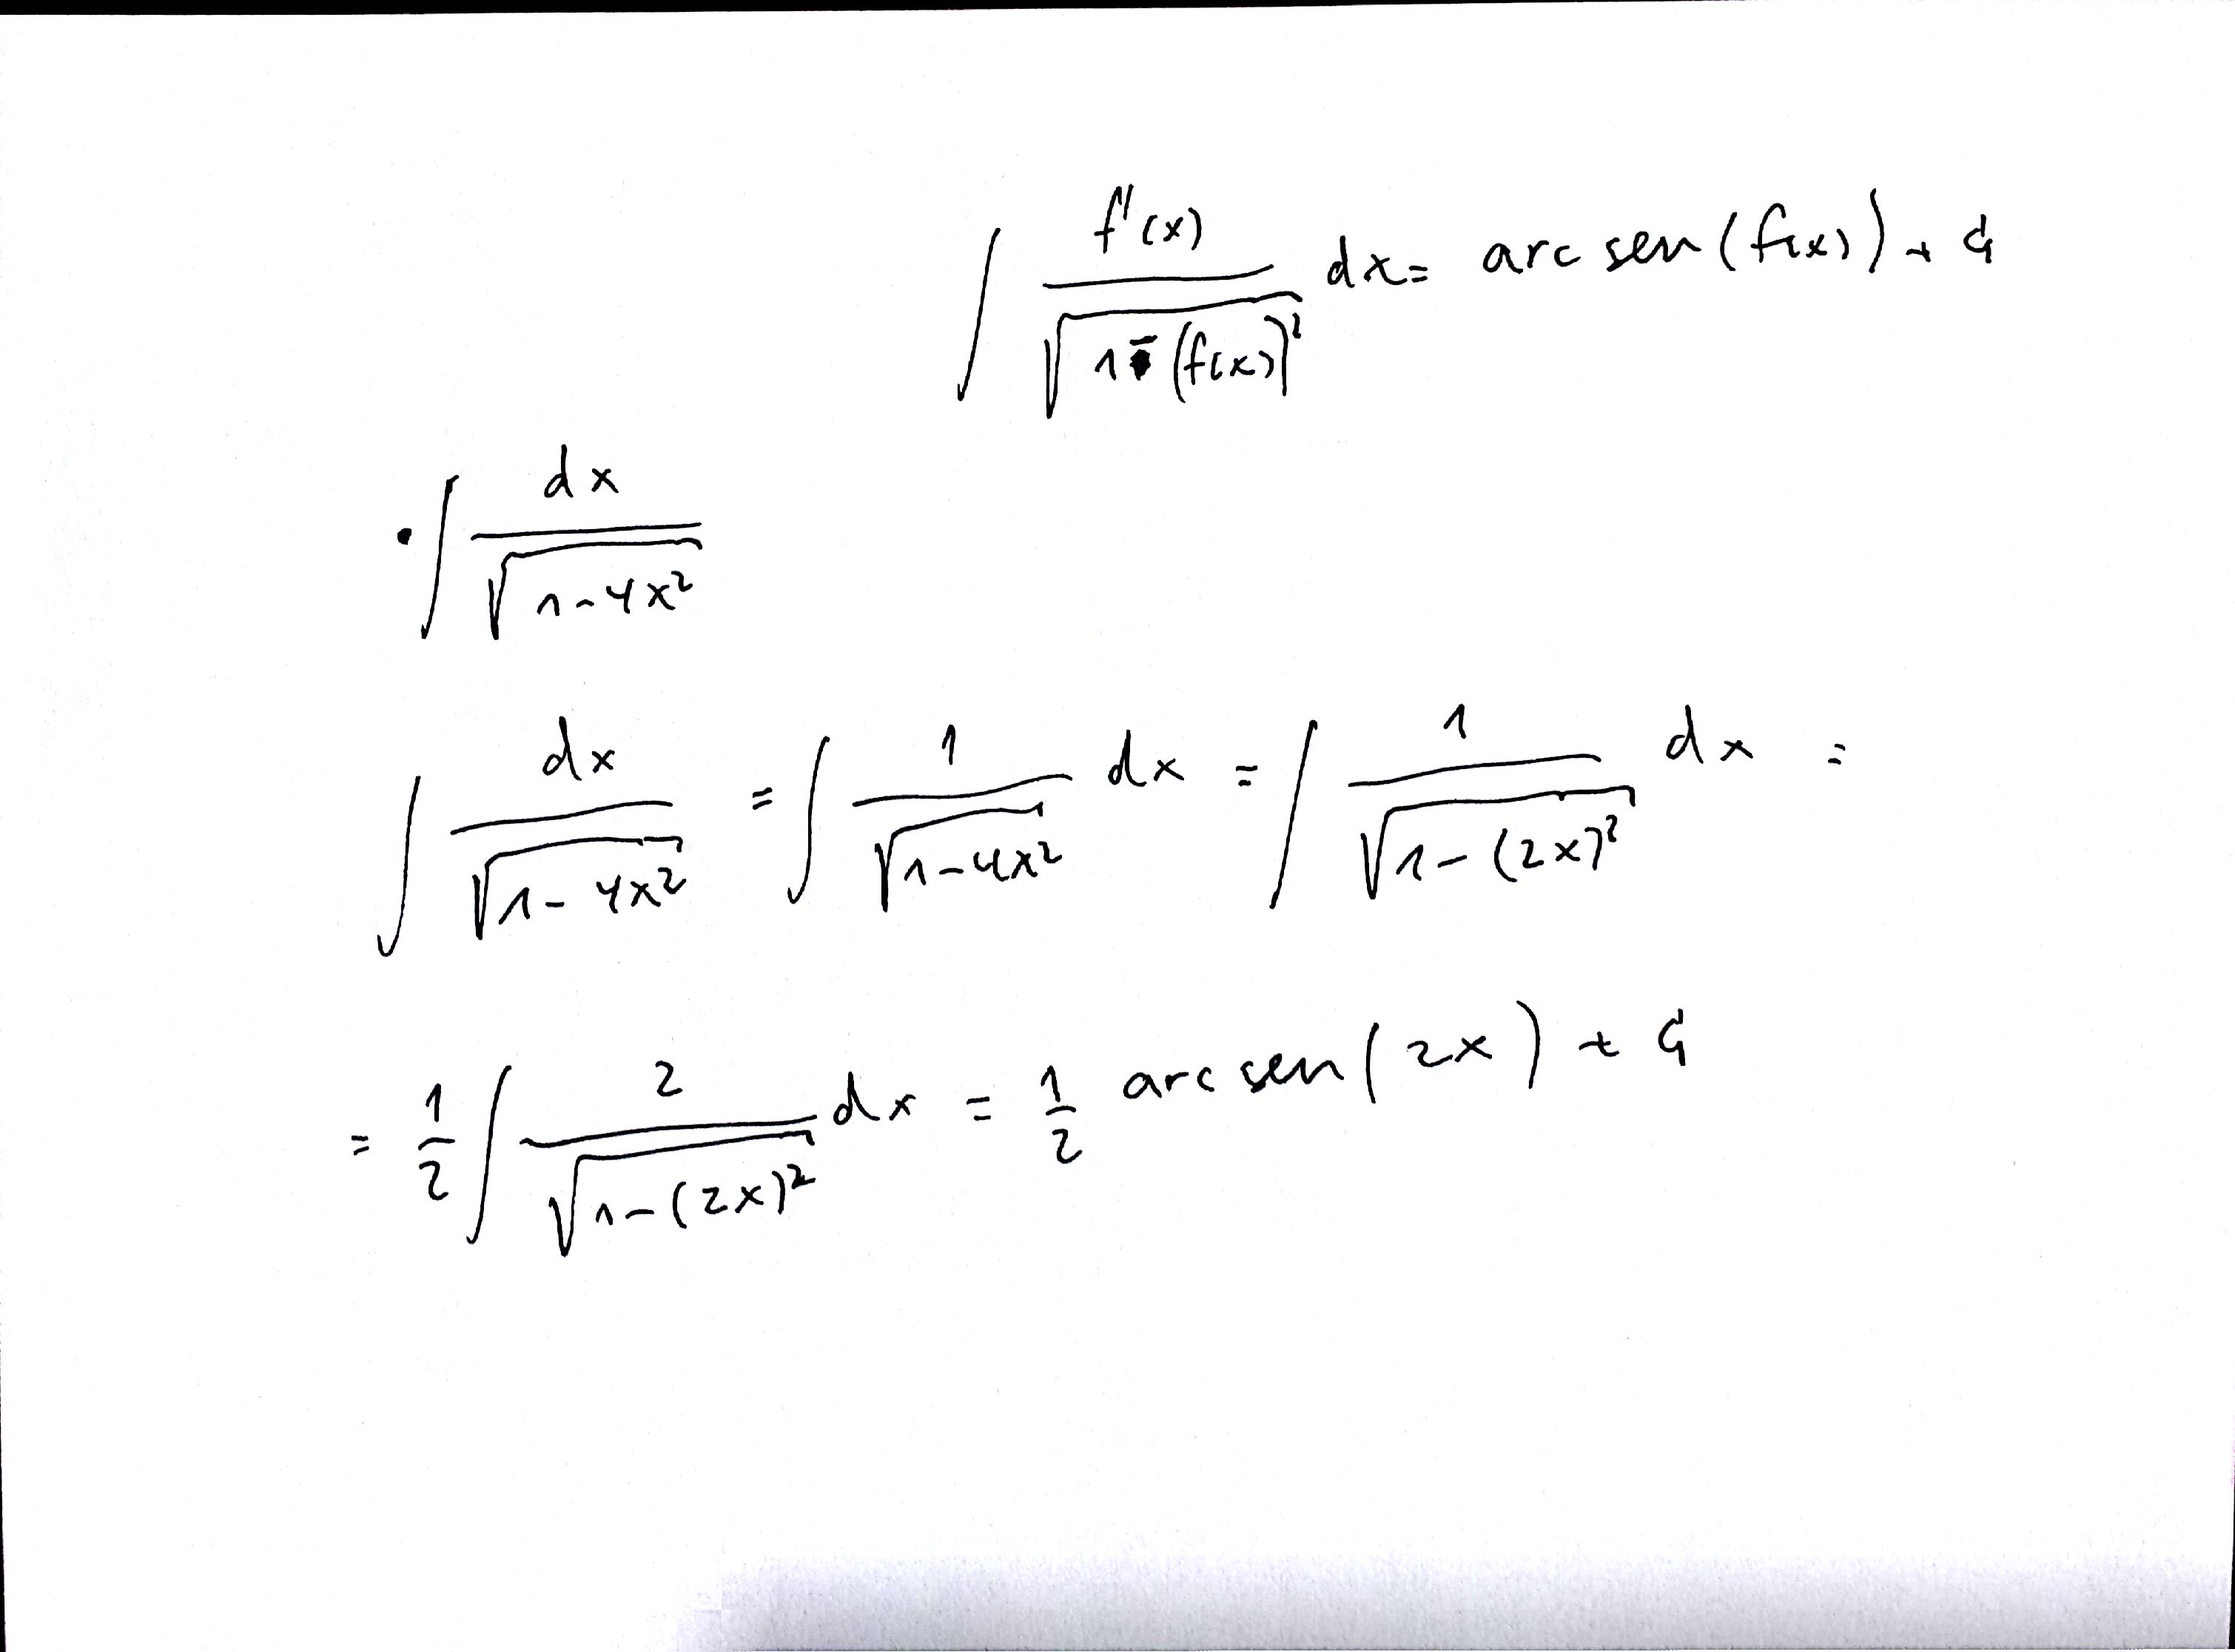 ∫ f'(x) / √(1-(f(x))²) dx = arc sen (f(x)) + C
• ∫ dx / √(1-4x²)
∫ dx / √(1-4x²) = ∫ 1 / √(1-4x²) dx = ∫ 1 / √(1-(2x)²) dx =
= 1/2 ∫ 2 / √(1-(2x)²) dx = 1/2 arc sen (2x) + C